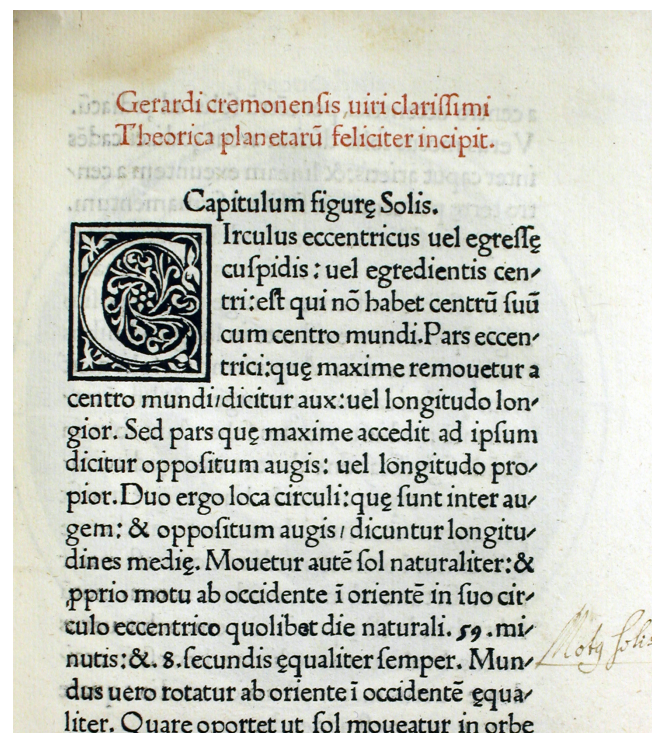 Gerardi cremonenſis,uiri clariſſimi
Theorica planetarū feliciter incipit.
Capitulum figurę Solis.
CIrculus eccentricus uel egreſſę
cuſpidis: uel egredientis cen⸗
tri:eſt qui nō habet centrū ſuū
cum centro mundi.Pars eccen⸗
trici:quę maxime remouetur a
centro mundi/dicitur aux:uel longitudo lon⸗
gior. Sed pars quę maxime accedit ad ipſum
dicitur oppoſitum augis: uel longitudo pro⸗
pior.Duo ergo loca circuli:quę ſunt inter au⸗
gem: & oppoſitum augis/dicuntur longitu⸗
dines medię. Mouetur autē ſol naturaliter:&
ꝓprio motu ab occidente ī orientē in ſuo cir⸗
culo eccentrico quolibet die naturali. 59.mi⸗
nutis:&. 8.ſecundis ęqualiter ſemper. Mun⸗
dus uero rotatur ab oriente ī occidentē ęqua⸗
liter. Quare oportet ut ſol moueatur in orbe
Motꝰ ſolis